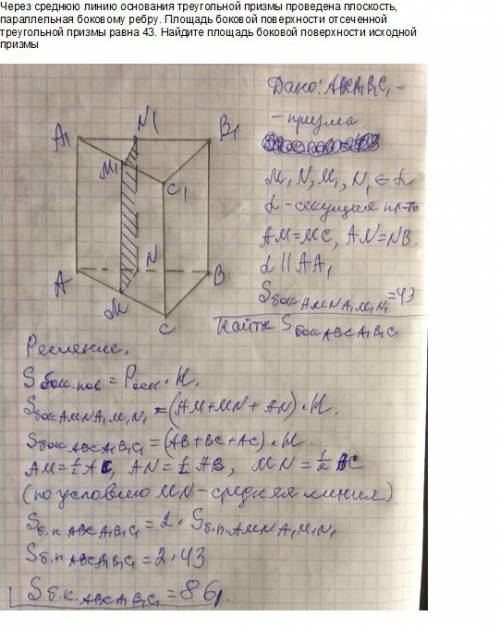 Через среднюю линию основания треугольной призмы проведена плоскость,
параллельная боковому ребру. Площадь боковой поверхности отсеченной
треугольной призмы равна 43. Найдите площадь боковой поверхности исходной
призмы
Дано: ABCA₁B₁C₁ –
- призма
M, N, M₁, N₁ ∈ α
α - секущая пл-ть
AM=MC, AN=NB.
α || AA₁
Sбок AMNA₁M₁N₁ =43
Найти SбокABCA₁B₁C₁
A₁ N₁ B₁
M₁ C₁
A N B
M C
Решение.
Sбок.пов = Pосн · H.
Sбок AMNA₁M₁N₁ = (AM+MN+AN)·H.
Sбок ABCA₁B₁C₁ = (AB+BC+AC)·H.
AM=½AC, AN=½AB, MN=½BC
(по условию MN - средняя линия)
Sб.п ABCA₁B₁C₁ = 2 · Sб.п. AMNA₁M₁N₁
Sб.п ABCA₁B₁C₁ = 2·43
Sб.п. ABCA₁B₁C₁ = 86